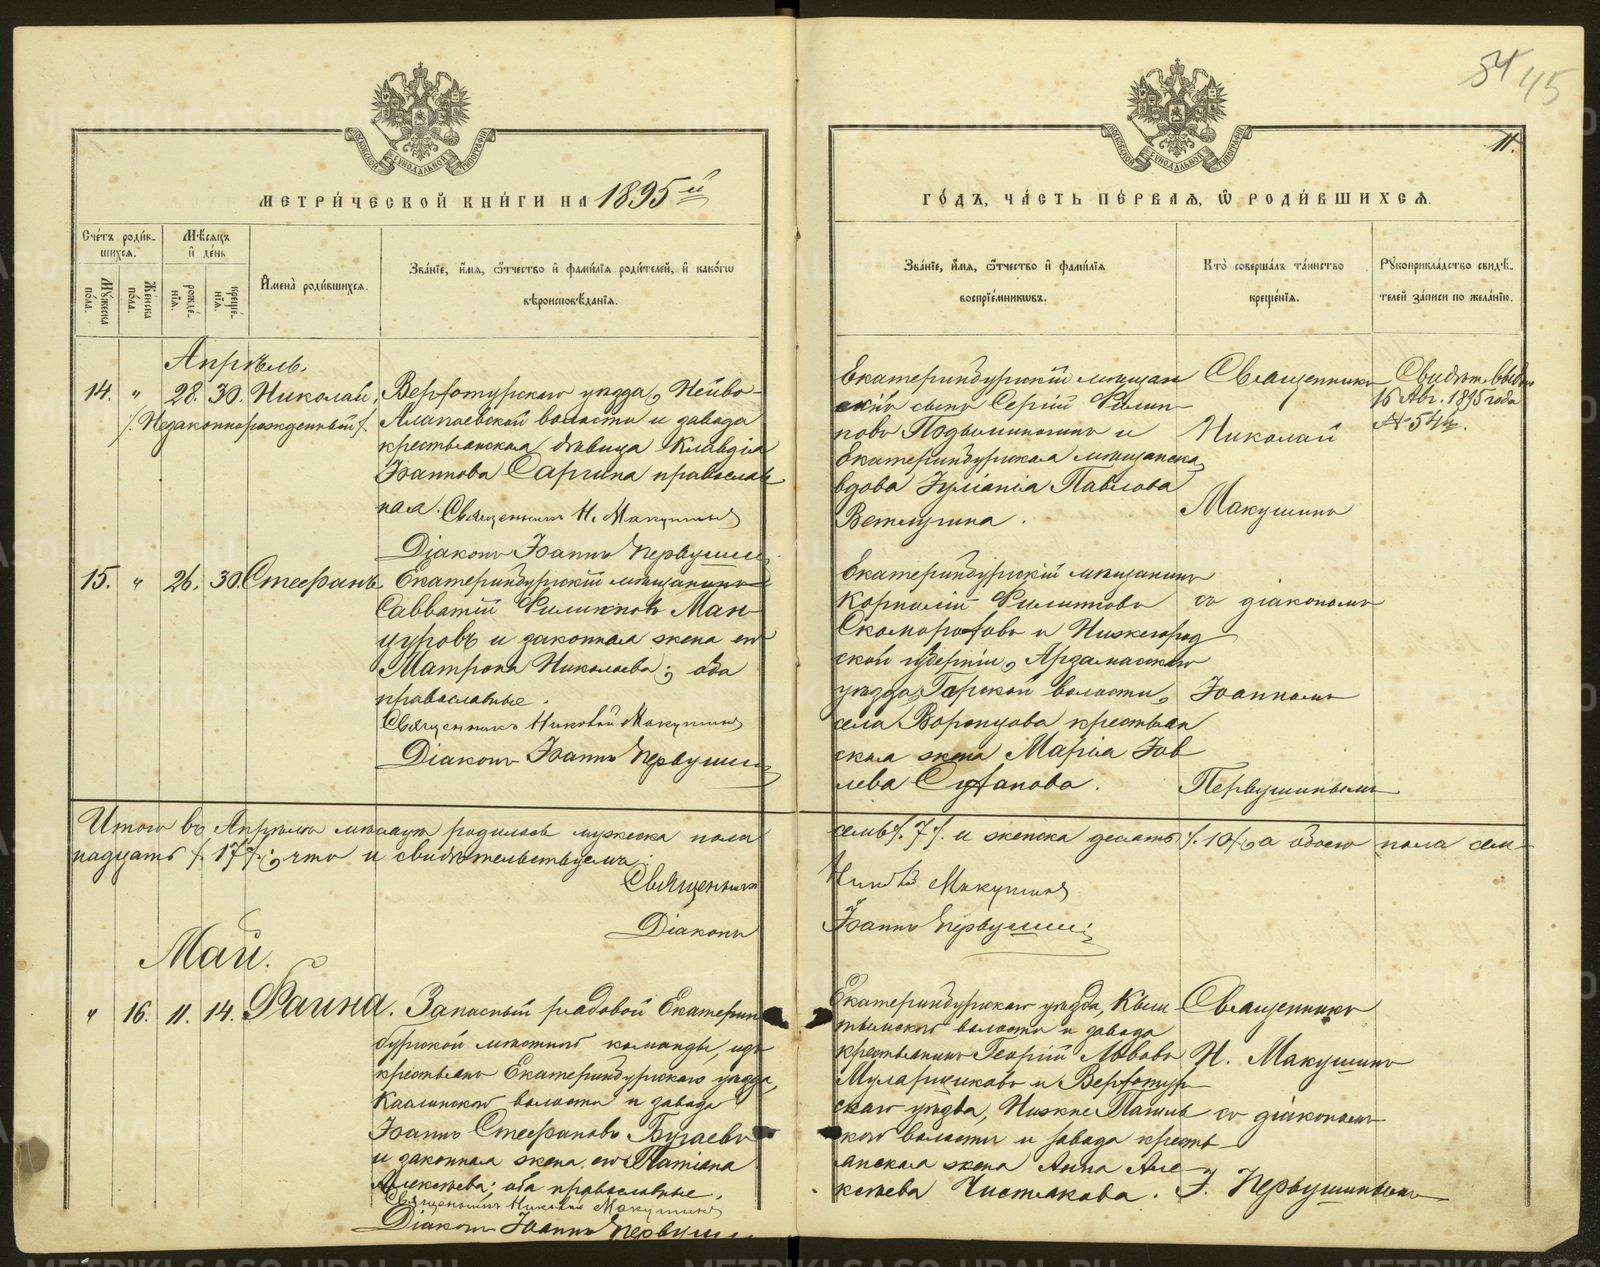 54 45
11.
МОСКОВСКОЙ СѴНОДАЛЬНОЙ ТИПОГРАФІИ
МОСКОВСКОЙ СѴНОДАЛЬНОЙ ТИПОГРАФІИ
МЕТРИ́ЧЕСКОЙ КНИ́ГИ НА 1895й
ГО́ДЪ, ЧА́СТЬ ПЕ́РВАЯ, Ѡ РОДИ́ВШИХСЯ.
Сче́тъ роди́в-
шихся.
Му́жеска по́ла.
Же́нска по́ла.
Мѣ́сяцъ
и де́нь
рожде́нїя.
креще́нїя.
Имена̀ роди́вшихся.
Зва́нїе, и́мя, ѻ́тчество и фами́лїя роди́телей, и како́гѡ
вѣроисповѣ́данїя.
Зва́нїе, и́мя, ѻ́тчество и фами́лїя
воспрїе́мникѡвъ.
Кто̀ соверша́лъ та́инство
креще́нїя.
Рꙋкоприкла́дство свидѣ́-
телей за́писи по жела́нїю.
Апрѣль.
14. " 28. 30. Николай,
/. Незаконнорожденный /.
Верхотурскаго уѣзда, Нейво-
Алапаевской волости и завода
крестьянская дѣвица Клавдія
Іоаннова Саргина православ
ная. Священникъ Н. Макушинъ
Діаконъ Іоаннъ Первушин
Екатеринбургскій мѣщан
скій сынъ Сергій Филип-
повъ Подвинниковъ и
Екатеринбургская мѣщанска
вдова Іуліанія Павлова
Ветлугина.
Священникъ
Николай
Макушинъ
Свидѣт. выдан
16 Авг. 1895 года
№ 544.
15. " 26. 30. Стефанъ
Екатеринбургскій мѣщанинъ
Савватій Филипповъ Ман
цуровъ и законная жена его
Матрона Николаева; оба
православные.
Священникъ Николай Макушинъ
Діаконъ Іоаннъ Первушин
Екатеринбургскій мѣщанинъ
Корнилій Филиповъ
Скоморохов и Нижегород
ской губерніи, Арзамасскаго
уѣзда, волости,
села Воронцова крестьян
ская жена Марія Іов
лева Суханова.
съ діакономъ
Іоанномъ
Первушинымъ
Итого въ Апрѣлѣ мѣсяцѣ родилось мужеска пола
семь /. 7 /. и женска десять /. 10 /., а обоего пола сем-
надцать /. 17 /.; что и свидѣтельствуемъ:
Священникъ
Николай Макушинъ
Діаконъ
Іоаннъ Первушин
Май.
" 16. 11. 14. Фаина.
Запасный рядовой Екатерин
бургской мѣстной команды, изъ
крестьянъ Екатеринбургскаго уѣзда,
Каслинской волости и завода
Іоаннъ Стефановъ Бугаевъ
и законная жена его Татіана
Алексѣева; оба православные.
Священникъ Николай Макушинъ
Діаконъ Іоаннъ Первушин
Екатеринбургскаго уѣзда, Кыш
тымской волости и завода
крестьянинъ Георгій Львовъ
Муларщиковъ и Верхотур-
скаго уѣзда, Нижне Тагиль
ской волости и завода кресть
янская жена Анна Але-
ксѣева Чистякова.
Священникъ
Н. Макушинъ
съ діакономъ
І. Первушинымъ